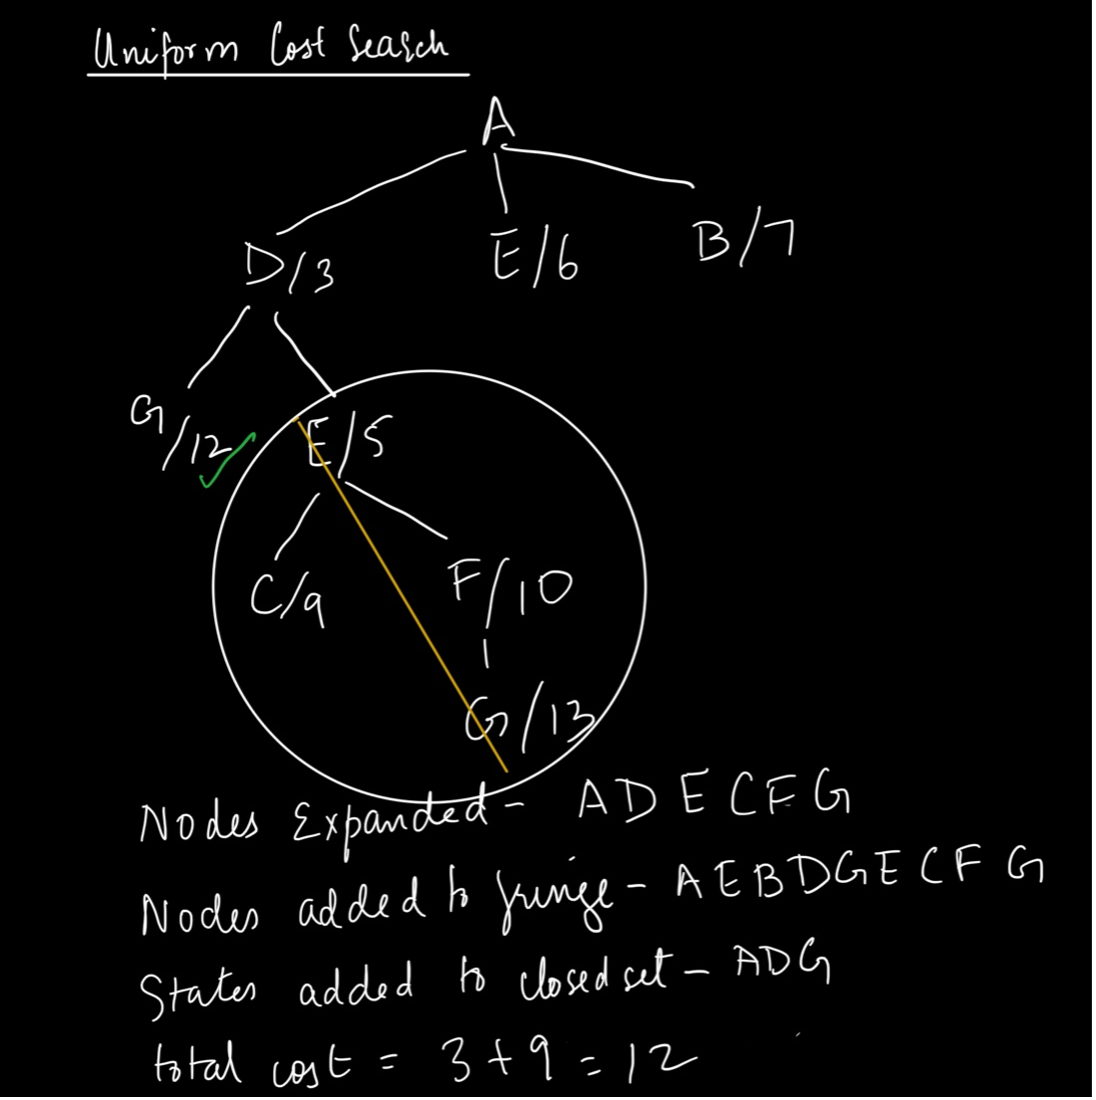 Uniform Cost Search
A
D/3 E/6 B/7
G/12 E/5
C/9 F/10
G/13
Nodes Expanded - A D E C F G
Nodes added to fringe - A E B D G E C F G
States added to closed set - A D G
total cost = 3 + 9 = 12